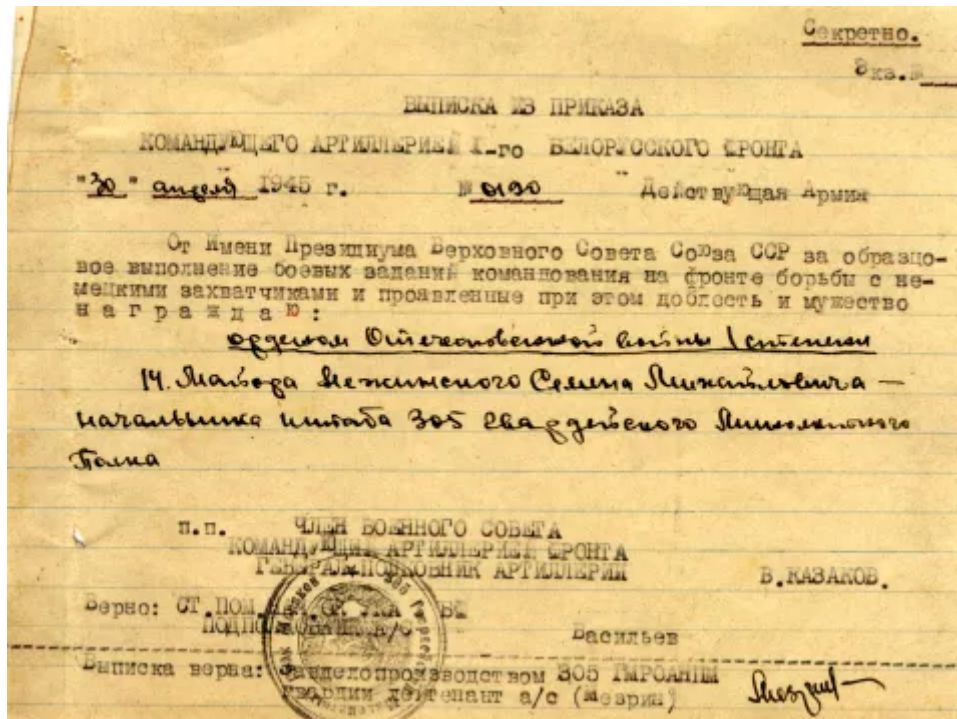 Секретно.
Экз.№
ВЫПИСКА ИЗ ПРИКАЗА
КОМАНДУЮЩЕГО АРТИЛЛЕРИЕЙ I-го БЕЛОРУССКОГО ФРОНТА
"30" апреля 1945 г. № 0190 Действующая Армия
От Имени Президиума Верховного Совета Союза ССР за образцо-
вое выполнение боевых заданий командования на фронте борьбы с не-
мецкими захватчиками и проявленные при этом доблесть и мужество
н а г р а ж д а ю :
орденом Отечественной войны I степени
14. Майора Межинского Семена Михайловича —
начальника штаба 305 гвардейского Минометного
Полка
п.п. ЧЛЕН ВОЕННОГО СОВЕТА
КОМАНДУЮЩИЙ АРТИЛЛЕРИЕЙ ФРОНТА
ГЕНЕРАЛ-ПОЛКОВНИК АРТИЛЛЕРИИ В.КАЗАКОВ.
Верно: СТ.ПОМ.
ПОДПОЛКОВНИК А/С Васильев
Выписка верна: Завделопроизводством 305
гвардии лейтенант а/с (Мезрин)